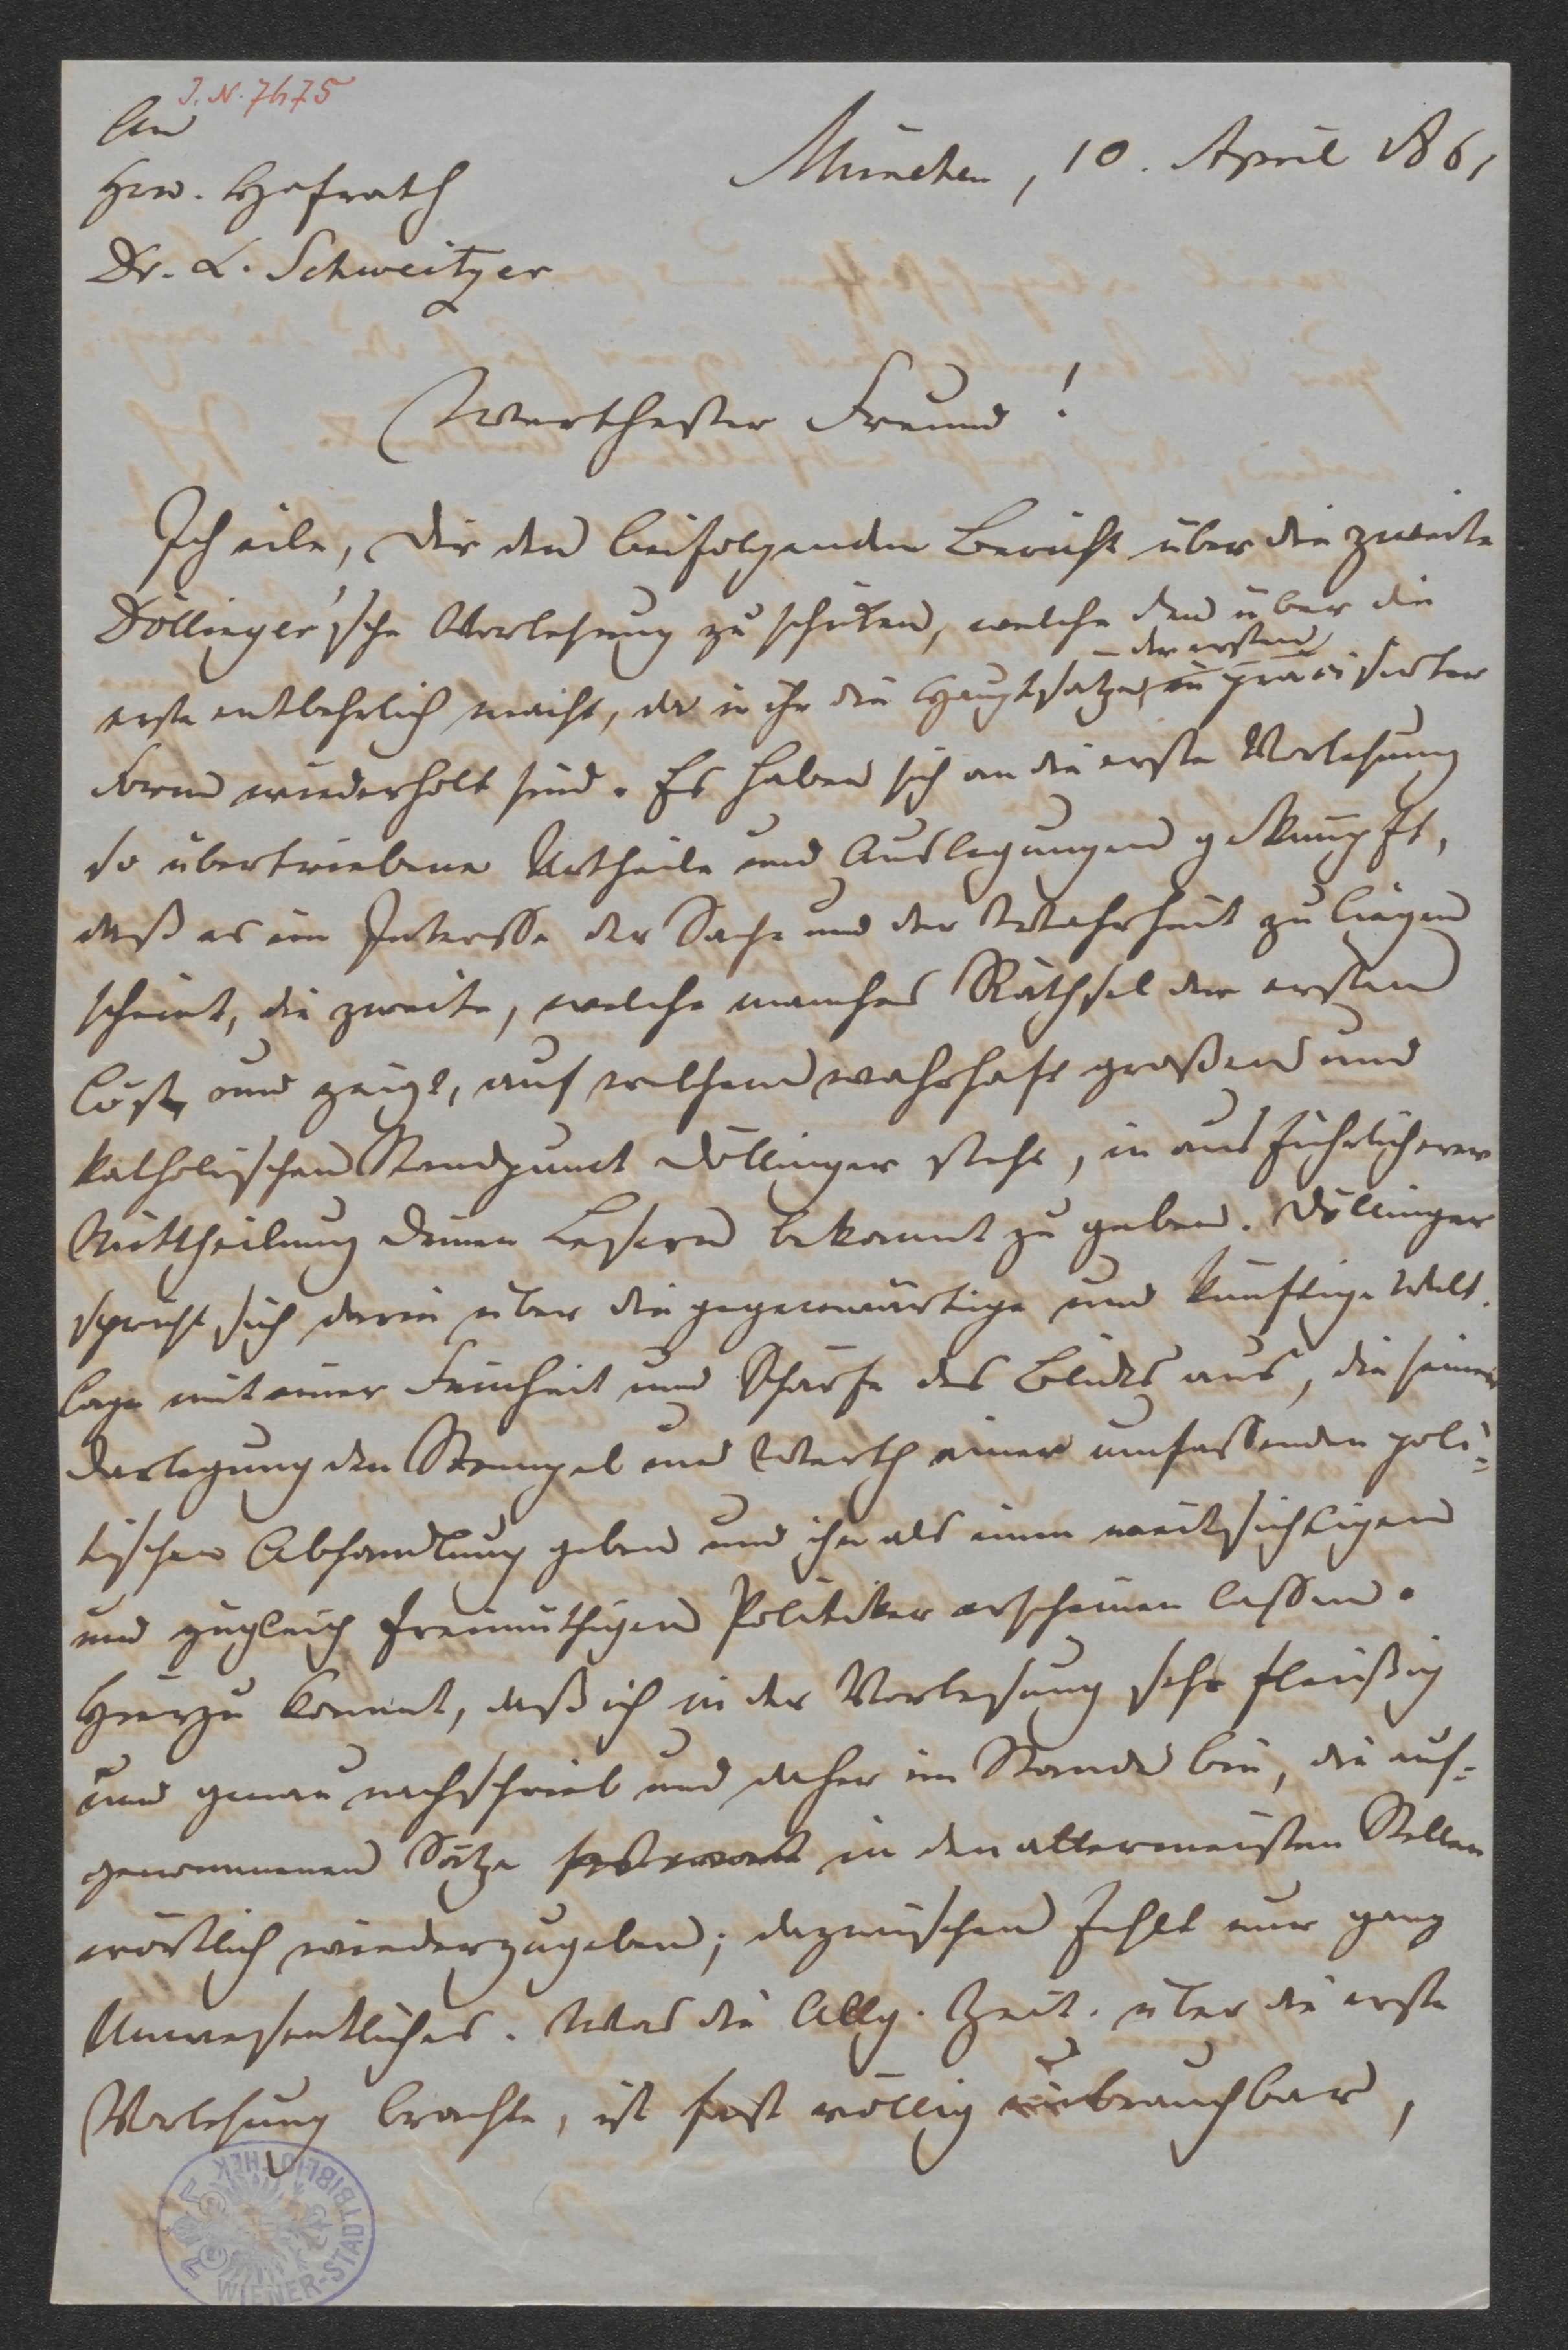 J. N. 7675
An
Hrn. Hofrath
Dr. L. Schweitzer
München, 10. April 1861
Werthester Freund!
Ich eile, Dir den beifolgenden Bericht über die zweite
Döllinger'sche Vorlesung zu schicken, welche den über die
erste entbehrlich macht, da in ihr die Hauptsätze der ersten in präcisirter
Form wiederholt sind. Es haben sich an die erste Vorlesung
so übertriebene Urtheile und Auslegungen geknüpft,
daß es im Interesse der Sache und der Wahrheit zu liegen
scheint, die zweite, welche manches Räthsel der ersten
löst und zeigt, auf welchem wahrhaft großen und
katholischen Standpunct Döllinger steht, in ausführlicherer
Mittheilung Deinen Lesern bekannt zu geben. Döllinger
spricht sich darin über die gegenwärtige und künftige Welt-
lage mit einer Feinheit und Schärfe des Blickes aus, die seiner
Darlegung den Stempel und Werth einer umfassenden poli-
tischen Abhandlung geben und ihn als einen weitsichtigen
und zugleich freimüthigen Politiker erscheinen lassen.
Hierzu kommt, daß ich in der Vorlesung sehr fleißig
und genau nachschrieb und daher im Stande bin, die auf-
genommenen Sätze in den allermeisten Stellen
wörtlich wiederzugeben; dazwischen fehlt nur ganz
Unwesentliches. Was die Allg. Zeit. über die erste
Vorlesung brachte, ist fast völlig unbrauchbar,
WIENER-STADTBIBLIOTHEK